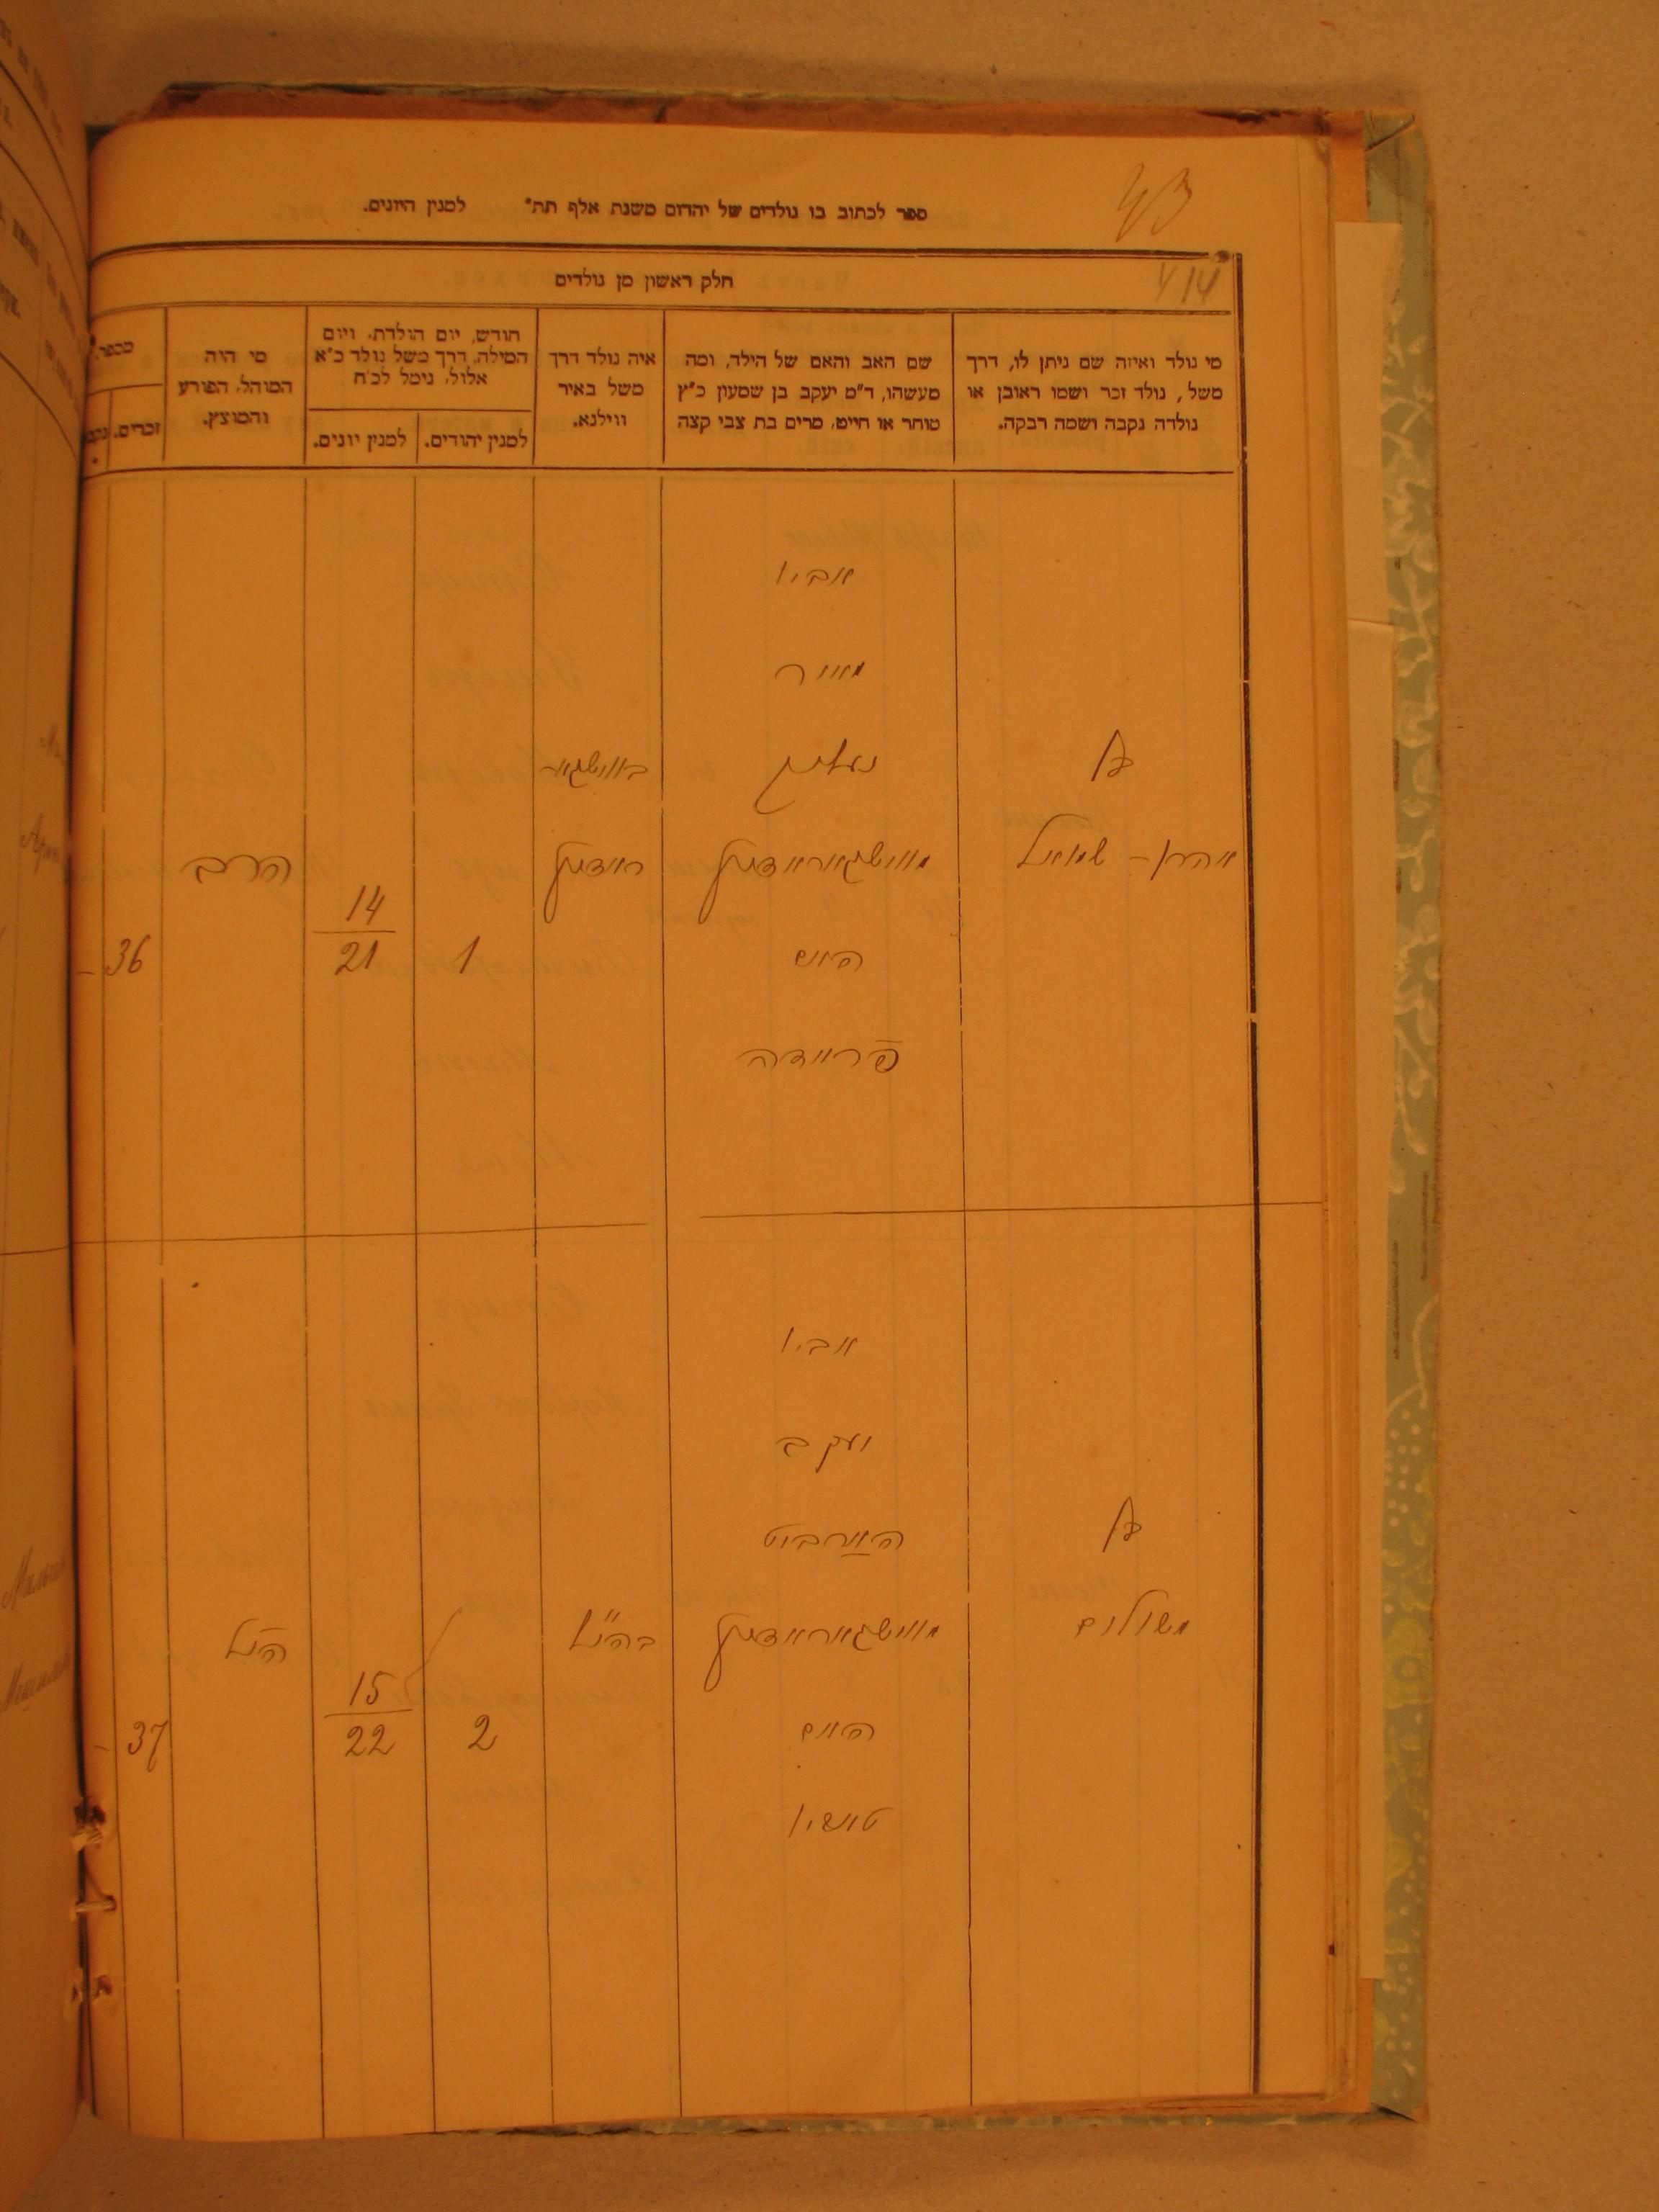 43
ספר לכתוב בו נולדים של יהדום משנת אלף תת" למנין היונים.
414
חלק ראשון מן נולדים
מי נולד ואיזה שם ניתן לו, דרך
משל, נולד זכר ושמו ראובן או
נולדה נקבה ושמה רבקה.
שם האב והאם של הילד, ומה
מעשהו, ד"מ יעקב בן שמעון כ"ץ
סוחר או חייט, מרים בת צבי קצה
איה נולד דרך
משל באיר
ווילנא.
חודש, יום הולדת, ויום
המילה, דרך משל נולד כ"א
אלול, נימל לכ"ח
למנין יהודים.
למנין יונים.
מי היה
המוהל, הפורע
והמוצץ.
מספר.
זכרים.
אהרן - שמואל
אביו
מאיר
מווישגאראדסקי
האם
פריידה
ראדסקי
1
14
21
הרב
36
משולם
אביו
יעקב
הארביט
מווישגאראדסקי
האם
בהנ"ל
2
15
22
הנ"ל
37